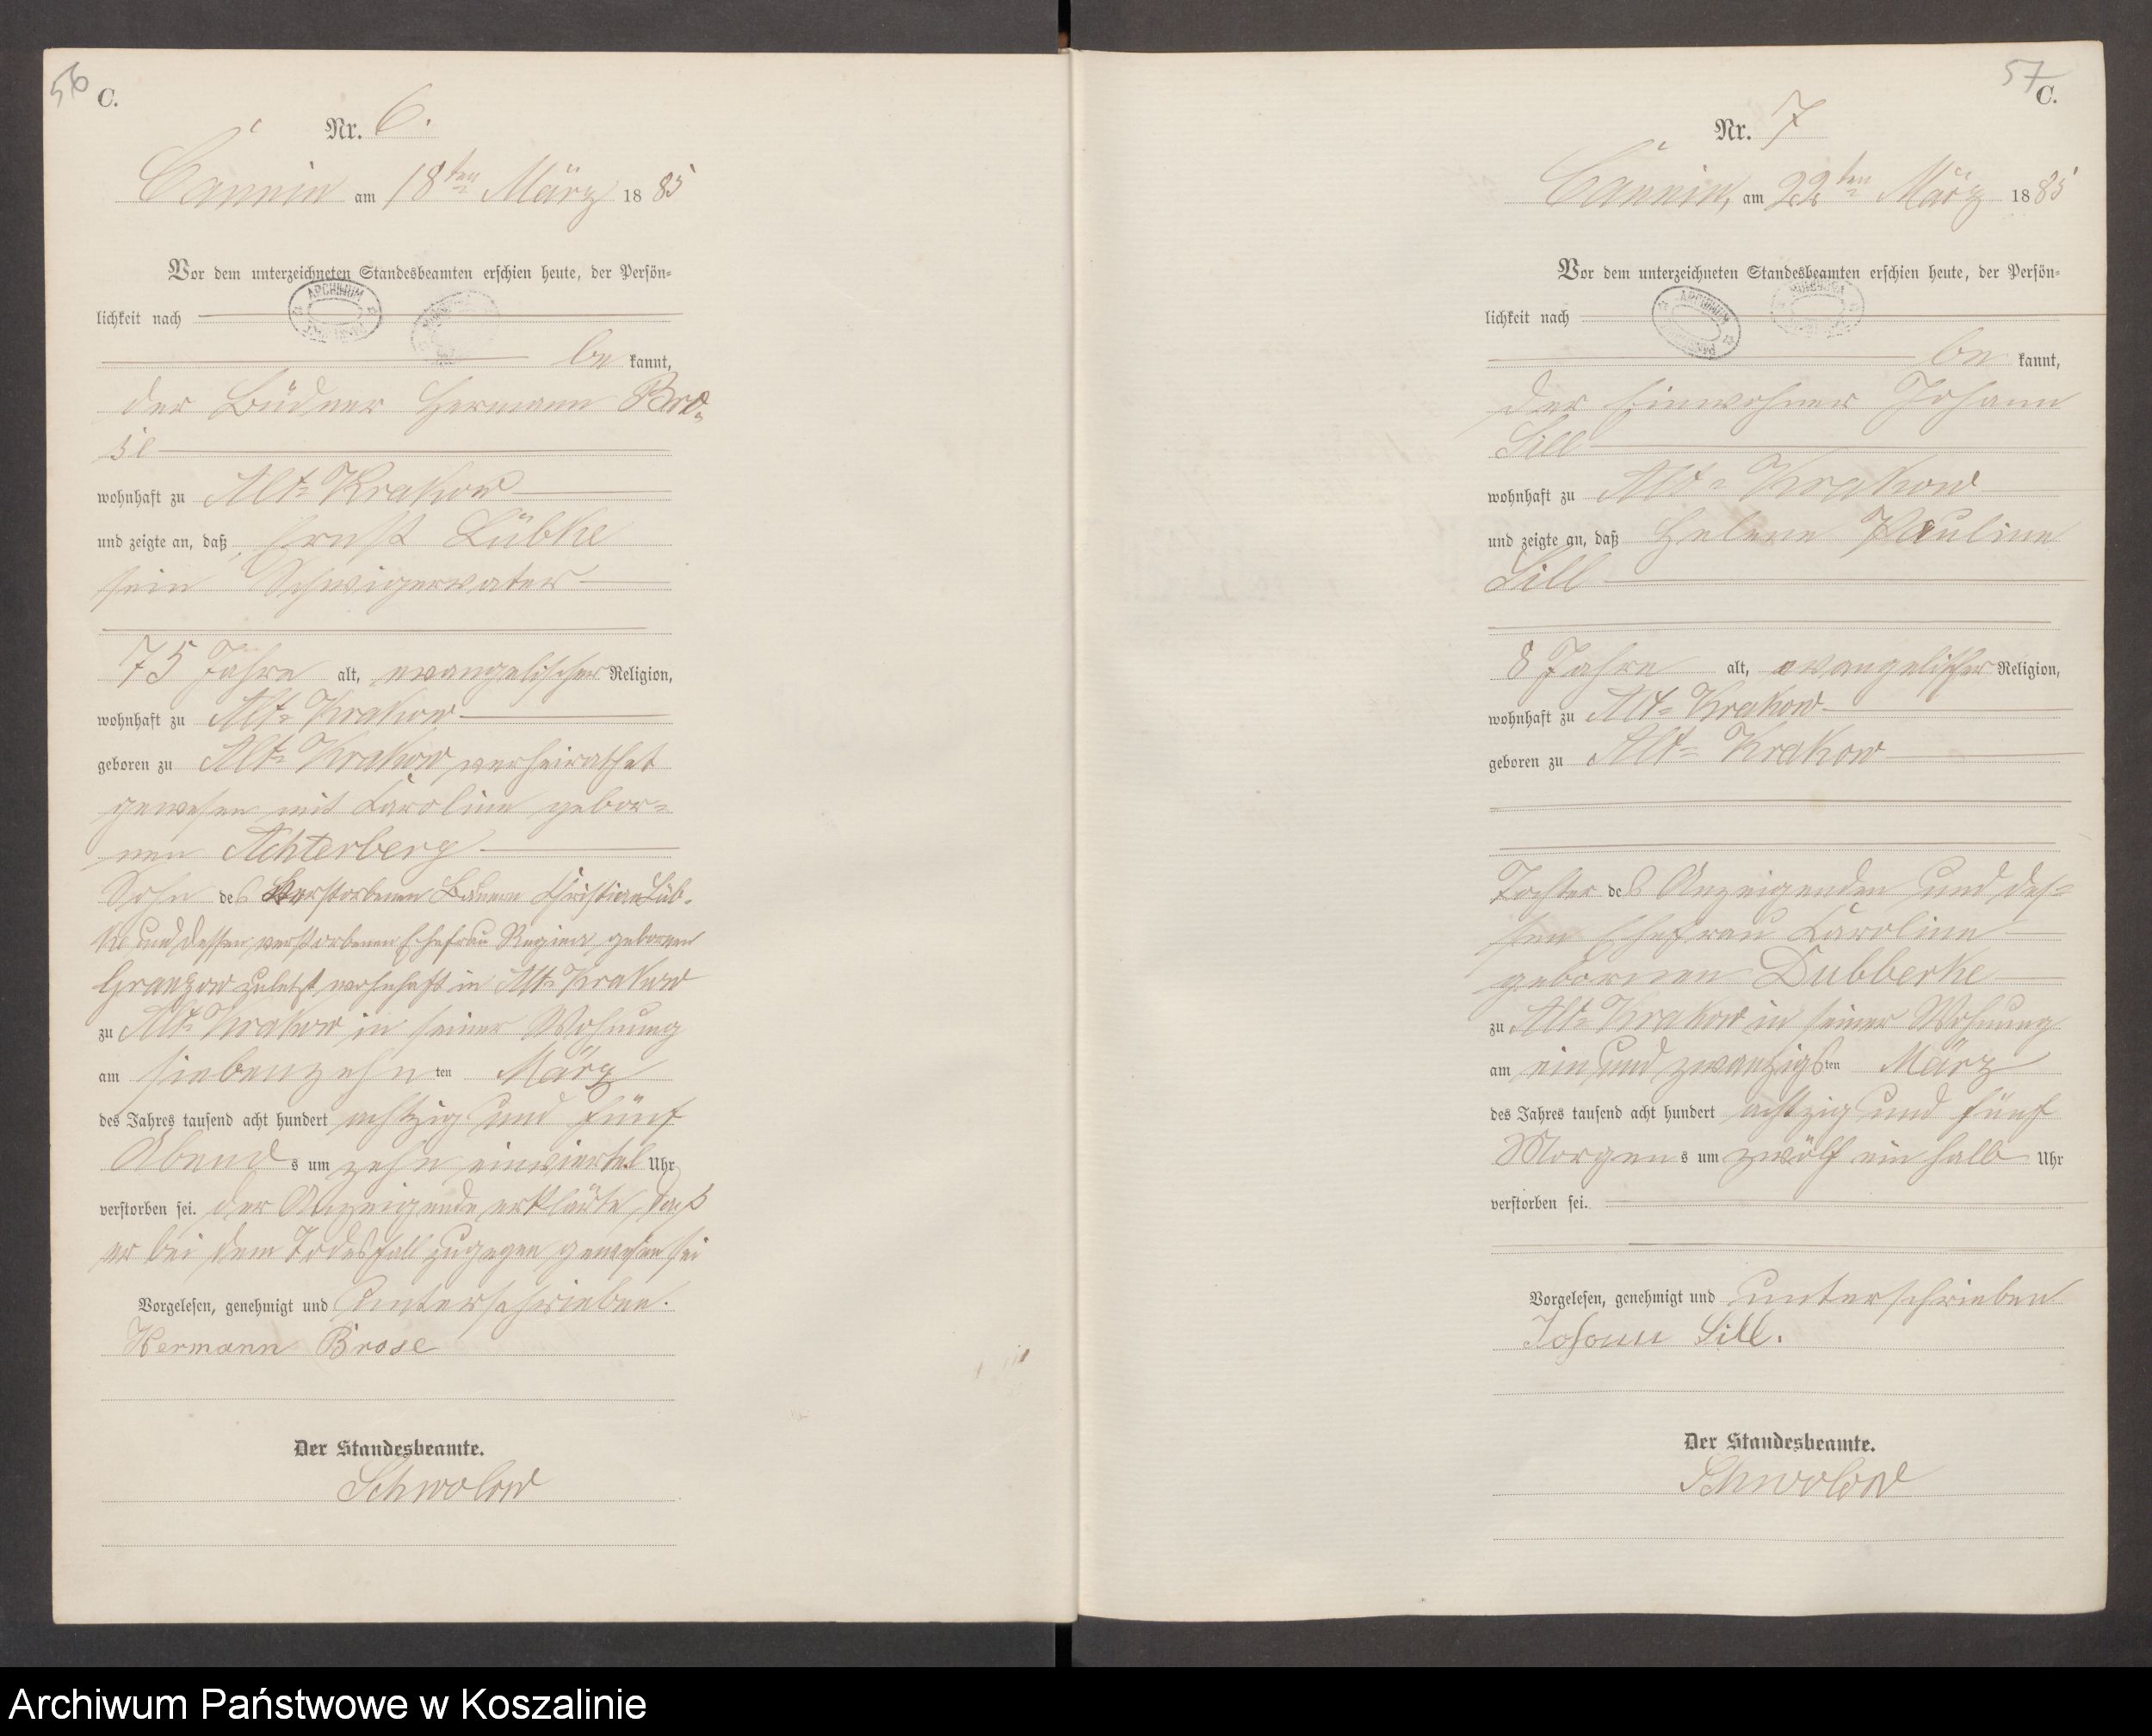 56
C.
Nr. 6.
Cannin am 18ten März 1885
Vor dem unterzeichneten Standesbeamten erschien heute, der Persön-
lichkeit nach
be kannt,
der Büdner Hermann Bro-
se
wohnhaft zu Alt-Krakow
und zeigte an, daß Ernst Lübke
sein Schwigervater
75 Jahre alt, evangelischer Religion,
wohnhaft zu Alt-Krakow
geboren zu Alt-Krakow, verheirathet
gewesen mit Caroline gebor-
nen Achterberg
Sohn des Verstorbenen Bauern Christian Lüb-
ke und dessen verstorbenen Ehefrau Regine, gebornen
Granzow zuletzt wohnhaft in Alt-Krakow
zu Alt-Krakow in seiner Wohnung
am siebenzehn ten März
des Jahres tausend acht hundert achtzig und fünf
Abend s um zehn einviertel Uhr
verstorben sei. der Anzeigende erklärte, daß
er bei dem Todesfall zugegen gewesen sei
Vorgelesen, genehmigt und unterschrieben.
Hermann Brose
Der Standesbeamte.
Schwolow
57
C.
Nr. 7
Cannin, am 22ten März 1885
Vor dem unterzeichneten Standesbeamten erschien heute, der Persön-
lichkeit nach
be kannt,
der Einwohner Johann
Sill
wohnhaft zu Alt-Krakow
und zeigte an, daß Helene Pauline
Sill
8 Jahre alt, evangelischer Religion,
wohnhaft zu Alt-Krakow
geboren zu Alt-Krakow
Tochter des Anzeigenden und des-
sen Ehefrau Caroline
gebornen Dubberke
zu Alt-Krakow in seiner Wohnung
am ein und zwanzigs ten März
des Jahres tausend acht hundert achtzig und fünf
Morgen s um zwölf ein halb Uhr
verstorben sei.
Vorgelesen, genehmigt und unterschrieben
Johann Sill.
Der Standesbeamte.
Schwolow
Archiwum Państwowe w Koszalinie